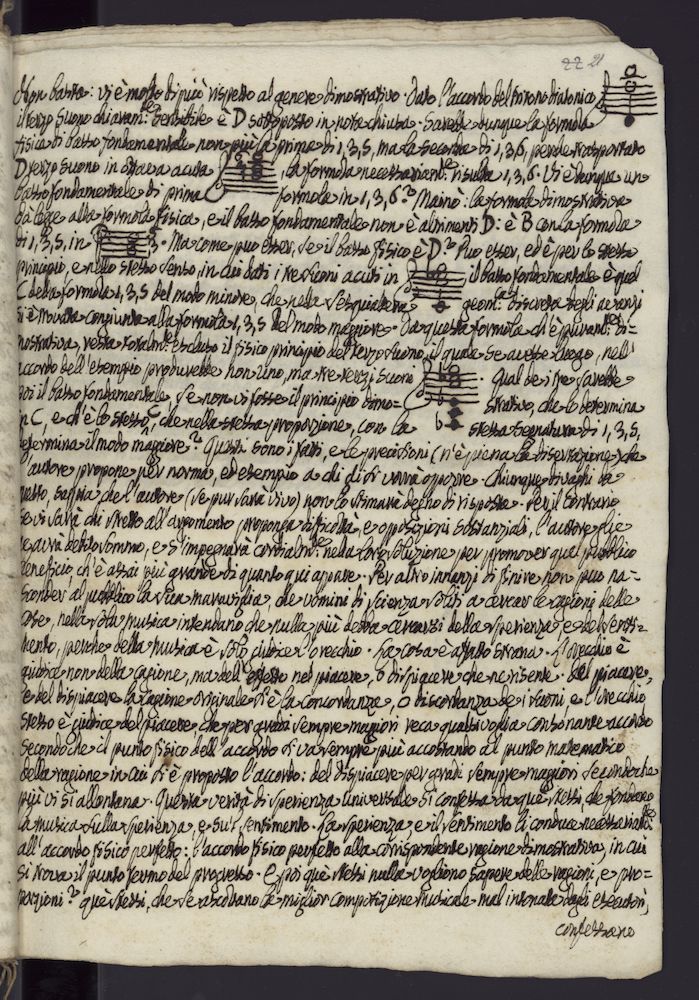 22 21
Non basta: vi è molto di più rispetto al genere dimostrativo. Dato l'accordo del tritono diatonico
il terzo suono chiaram.te sensibile è D sottoposto in note chiusa. Sarebbe dunque la formola
fisica di basso fondamentale non più la prima di 1,3,5, ma la seconda di 1,3,6, perche trasportato
D terzo suono in ottava acuta la formola necessariam.te risulta 1,3,6. Vi è dunque un
basso fondamentale di prima formola in 1,3,6? Mainò: la formola dimostrativa
dà legge alla formola fisica, e il basso fondamentale non è altrimenti D: è B con la formola
di 1,3,5, in 3. Ma come può esser, se il basso fisico è D? Può esser, ed è per lo stesso
principio, e nello stesso senso, in cui dati i tre suoni acuti in il basso fondamentale è qual
C della formola 1,3,5 del modo minore, che nella sesquialtera geom.ca discreta degli avanzi
si è trovata congiunta alla formola 1,3,5 del modo maggiore. Da questa formola ch'è puram.te di-
mostrativa, resta totalm.te escluso il fisico principio del terzo suono, il quale se avesse luogo, nell'
accordo dell'esempio produrrebbe non uno, ma tre terzi suoni. Qual de i tre sarebbe
poi il basso fondamentale, se non vi fosse il principio dimo- strativo, che lo determina
in C, e ch'è lo stesso, che nella stessa proporzione, con la b stessa segnatura di 1,3,5,
determina il modo maggiore? Questi sono i fatti, e le precisioni (n'è piena la dissertazione) che
l'autore propone per norma, ed esempio a chi di oi vorrà opporre. Chiunque divaghi da
questo, sappia che l'autore (se pur sarà vivo) non lo stimarà degno di risposta. Per il contrario
se vi sarà chi stretto all'argomento proponga difficoltà, e opposizioni sostanziali, l'autore glie
ne avrà debito sommo, e s'impegnarà cordialm.te nella loro soluzione per promover quel pubblico
beneficio, ch'è assai più grande di quanto qui appare. Per altro innanzi di finire non può na-
sconder al pubblico la sua maraviglia, che uomini di scienza soliti a cercar le ragioni delle
cose, nella sola musica intendano che nulla più debba cercarsi della sperienza e del senti-
mento, perche della musica è solo giudice l'orecchio. La cosa è affatto strana. L'orecchio è
giudice non della cagione, ma dell'effetto nel piacere, o dispiacere che ne risente. Del piacere,
e del dispiacere la cagione originale si è la concordanza, o discordanza de i suoni, e l'orecchio
stesso è giudice del piacere, che per gradi sempre maggiori reca qualsivoglia consonante accordo
secondo che il punto fisico dell'accordo si va sempre più accostando al punto matematico
della ragione in cui si è proposto l'accordo: del dispiacere per gradi sempre maggiori secondo che
più vi si allontana. Questa verità di sperienza universale si confessa da que' stessi, che fondano
la musica sulla sperienza, e su'l sentimento. La sperienza e il sentimento li conduce necessariam.te
all'accordo fisico perfetto: l'accordo fisico perfetto alla corrispondente ragione dimostrativa, in cui
si trova il punto fermo del progresso. E poi que' stessi nulla vogliono sapere delle ragioni, e pro-
porzioni? que' stessi, che se ascoltano la miglior composizione musicale mal intonata dagli esecutori,
confessano